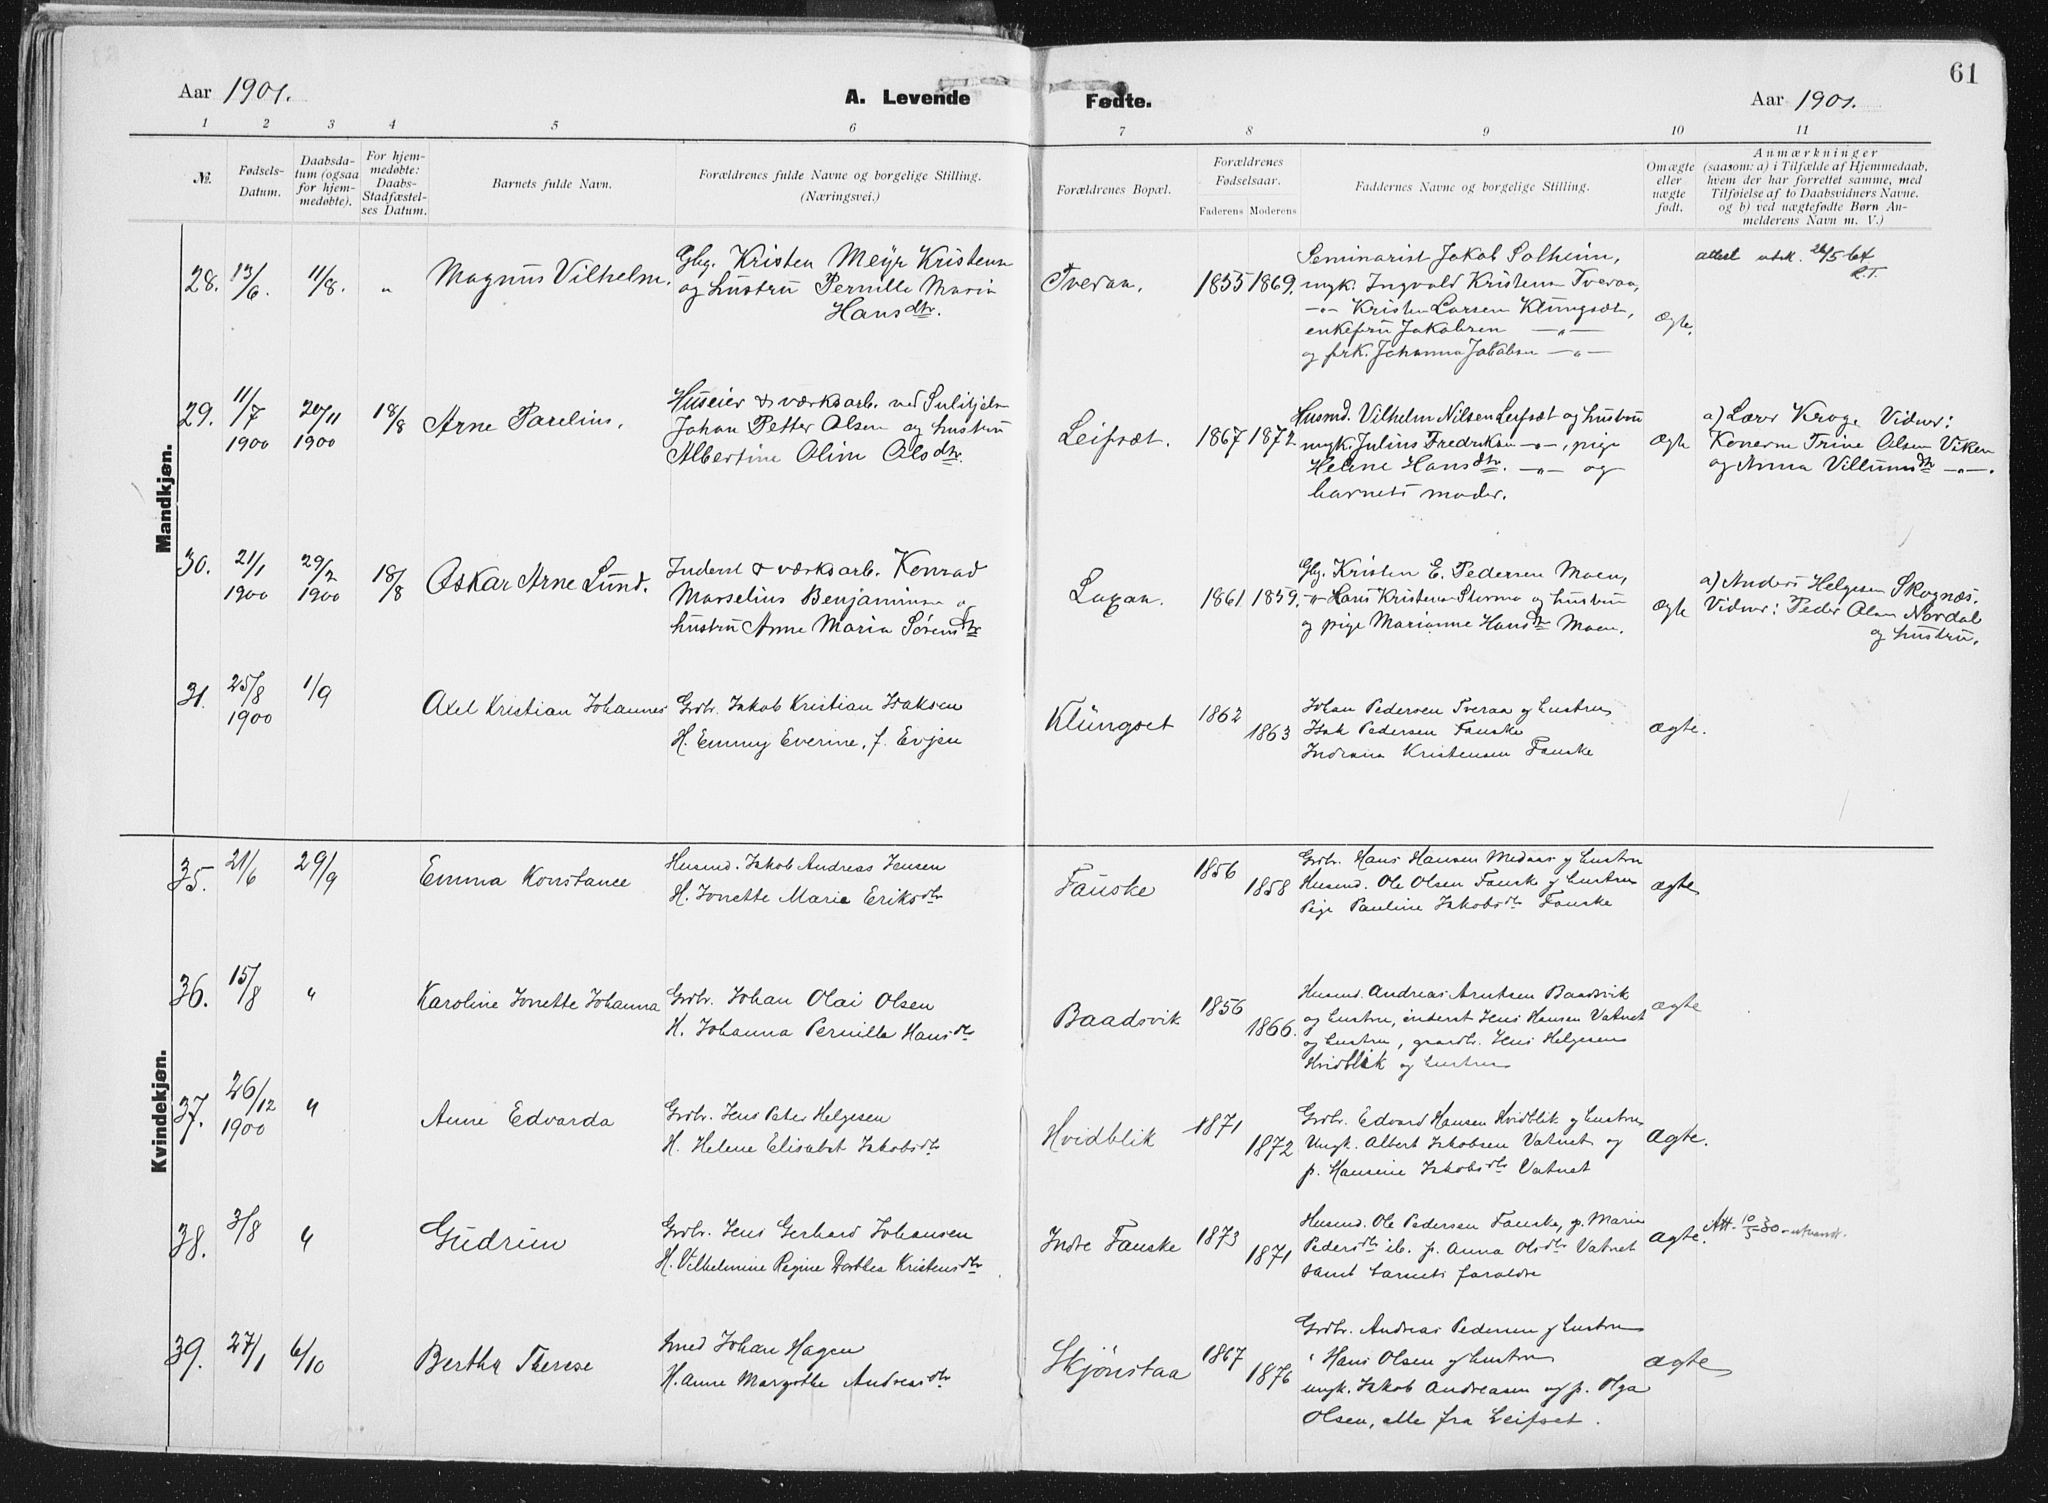 61
Aar 1901.
A. Levende Fødte.
Aar 1901.
1 2 3 4 5 6 7 8 9 10 11
№.
Fødsels-
Datum.
Daabsda-
tum (ogsaa
for hjem-
medøbte).
For hjem-
medøbte:
Daabs-
Stadfæstel-
ses Datum.
Barnets fulde Navn.
Forældrenes fulde Navne og borgelige Stilling.
(Næringsvei.)
Forældrenes Bopæl.
Forældrenes
Fødselsaar.
Faderens Moderens
Faddernes Navne og borgelige Stilling.
Omægte
eller
uægte
født.
Anmærkninger
(saasom: a) i Tilfælde af Hjemmedaab,
hvem der har forrettet samme, med
Tilføielse af to Daabsvidners Navne.
og b) ved uægtefødte Børn An-
melderens Navn m. V.)
Mandkjøn.
28. 13/6. 11/8. "
Magnus Vilhelm.
Gbg. Kristen Meyr Kristensen
og hustru Pernille Maria
Hansdtr.
Tveraa.
1855 1869.
Seminarist Jakob Solheim,
ungk. Ingvald Kristensen Tveraa,
-"- Kristen Larsen Klungsæt,
enkefru Jakobsen -"-
og frk. Johanna Jakobsen -"-
ægte.
attest utst. 26/5 64
R.T.
29. 11/7 1900 20/11 1900 18/8
Arne Parelius.
Huseier & værksarb. ved Sulitjelma
Johan Petter Olsen og hustru
Albertine Oline Olsdtr.
Leifsæt.
1867 1872
Husmd. Vilhelm Nilsen Leifsæt og hustru
ungk. Julius Fredriksen -"-, pige
Helene Hansdtr. -"- og
barnets moder.
ægte
a) Lærer Kroge Vidner:
Konerne Trine Olsen Viken
og Anna Villumsdtr -"-.
30. 21/1 1900 29/2 1900 18/8
Oskar Arne Lund.
Inderst & værksarb. Konrad
Marselius Benjaminsen og
hustru Anne Maria Sørensdtr
Laxaa.
1861 1859.
Gbg. Kristen E. Pedersen Moen,
-"- Hans Kristensen Stormo og hustru
og pige Marianne Hansdtr Moen.
ægte
a) Anders Helgesen Skognæs.
Vidner: Peder Olsen Nordal
og hustru.
31. 25/8 1900 1/9
Axel Kristian Johannes
Grdbr. Jakob Kristian Isaksen
H. Emmy Everine, f. Evjen
Klungset
1862 1863
Johan Pedersen Tveraa og hustru
Isak Pedersen Fauske
Indiana Kristensen Fauske
ægte.
Kvindekjøn.
35. 21/6 29/9
Emma Konstance
Husmd. Jakob Andreas Jensen
H. Jonette Marie Eriksdtr
Fauske
1856 1858
Grdbr. Hans Hansen Medaas og hustru
Husmd. Ole Olsen Fauske og hustru
Pige Pauline Jakobsdtr Fauske
ægte
36. 15/8 "
Karoline Jonette Johanna
Grdbr. Johan Olai Olsen
H. Johanna Pernille Hansdtr
Baadsvik
1856 1866.
Husmd. Andreas Arntsen Baadsvik
og hustru, inderst Jens Hansen Vatnet
og hustru, gaardbr. Jens Helgesen
Hvidblik og hustru
ægte
37. 26/12 1900 "
Anne Edvarda
Grdbr. Jens Peter Helgesen
H. Helene Elisabet Jakobsdtr
Hvidblik
1871 1872
Grdbr. Edvard Hansen Hvidblik og hustru
Ungk. Albert Jakobsen Vatnet og
p. Hansine Jakobsdtr Vatnet
ægte.
38. 3/8 "
Gudrun
Grdbr. Jens Gerhard Johansen
H. Vilhelmine Regine Dorthea Kristensdtr
Indre Fauske
1873 1871
Husmd. Ole Pedersen Fauske, p. Marie
Pedersdtr ib. p. Anna Olsdtr Vatnet
samt barnets forældre
ægte.
Att. 10/5-30 utstedt.
39. 27/1 6/10
Bertha Therese
Smed Johan Hagen
H. Anne Margothe Andreasdtr
Skjønstaa
1867 1876
Grdbr. Andreas Pedersen og hustru
" Hans Olsen og hustru
ungk. Jakob Andreasen og p. Olga
Olsen, alle fra Leifset.
ægte